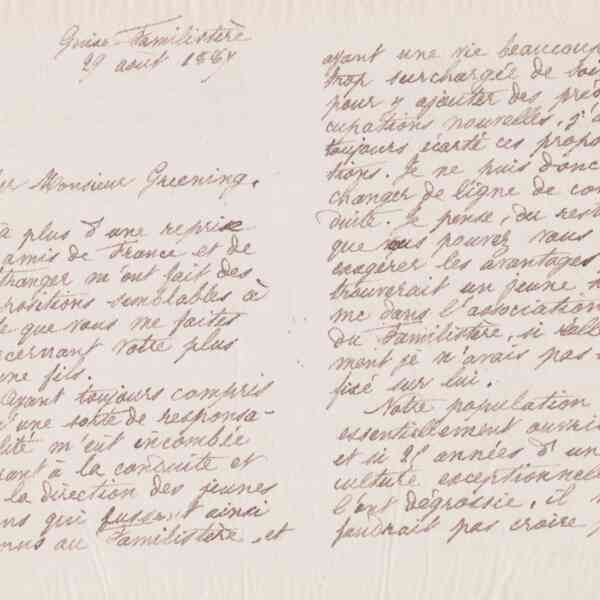 Guise-Familistère
29 août 1887
Monsieur Greening,
à plus d'une reprise
amis de France et de
m'ont fait des
semblables à
que vous me faites
votre plus
fils.
Ayant toujours compris
une sorte de responsa-
m'eut incombée
à la conduite et
la direction des jeunes
qui fussent ainsi
au Familistère, et
ayant une vie beaucoup
trop surchargée de
pour y ajouter des
cupations nouvelles, j'
toujours écarté ces
tions. Je ne puis donc
changer de ligne de con
duite. Je pense, du
que vous pouvez vous
exagérer les avantages
trouverait un jeune
me dans l'association
du Familistère, si
ment je n'avais pas
fixé sur lui.
Notre population
essentiellement
et si années d'
culture exceptionnelle
l'ont dégrossie, il
faudrait pas croire